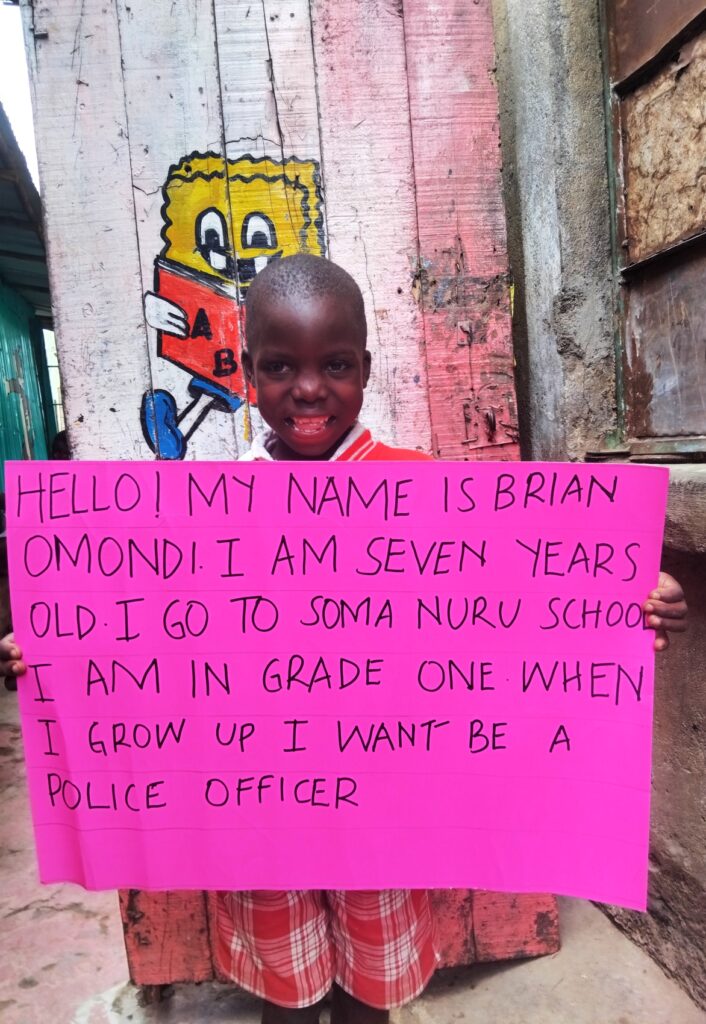 A
B
HELLO! MY NAME IS BRIAN
OMONDI. I AM SEVEN YEARS
OLD. I GO TO SOMA NURU SCHOOL
I AM IN GRADE ONE. WHEN
I GROW UP I WANT BE A
POLICE OFFICER